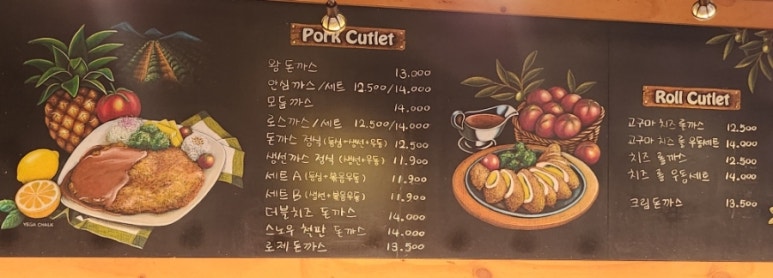 Pork Cutlet
왕돈까스 13.000
안심까스/세트 12.500/14.000
모듬까스 14.000
로스까스/세트 12.500/14.000
돈까스 정식 (등심+생선+우동) 12.500
생선까스 정식 (생선+우동) 11.900
세트 A (등심+볶음우동) 11.900
세트 B (생선+볶음우동) 11.900
더블치즈 돈까스 14.000
스노우 철판 돈까스 14.000
로제돈까스 13.500
Roll Cutlet
고구마 치즈 롤까스 12.500
고구마 치즈 롤 우동세트 14.000
치즈 롤까스 12.500
치즈 롤 우동세트 14.000
크림돈까스 13.500
VEGA CHALK